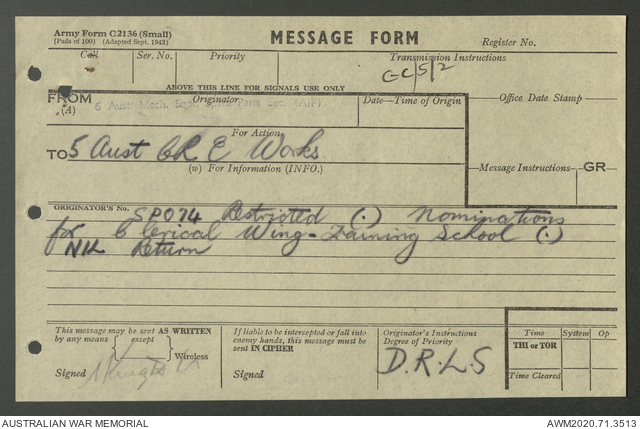 Army Form C2136 (Small)
(Pads of 100) (Adapted Sept. 1943)
MESSAGE FORM
Register No.
Call
Ser. No.
Priority
Transmission Instructions
GC/5/2
ABOVE THIS LINE FOR SIGNALS USE ONLY
FROM
(A)
Originator
6 Aust. Mech. Eqpt. Spare Parts Sec. (AIF)
Date—Time of Origin
Office Date Stamp
For Action
TO 5 Aust CR E Works
(w) For Information (INFO.)
Message Instructions
GR
ORIGINATOR'S No. SP074 Restricted (.) Nominations
for Clerical Wing - Training School (.)
NIL Return
This message may be sent AS WRITTEN
by any means
except
Wireless
Signed
If liable to be intercepted or fall into
enemy hands, this message must be
sent IN CIPHER
Signed
Originator's Instructions
Degree of Priority
D.R.L.S
Time
System
Op
THI or TOR
Time Cleared
AUSTRALIAN WAR MEMORIAL
AWM2020.71.3513